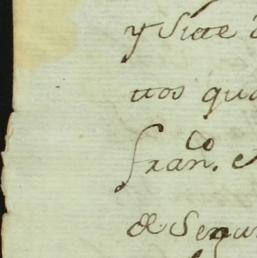 y Siete
ttos qu
fran.co
de Segu